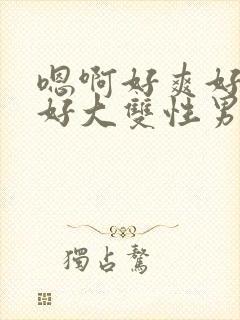 嗯啊好爽好
好大雙性男
獨占鰲